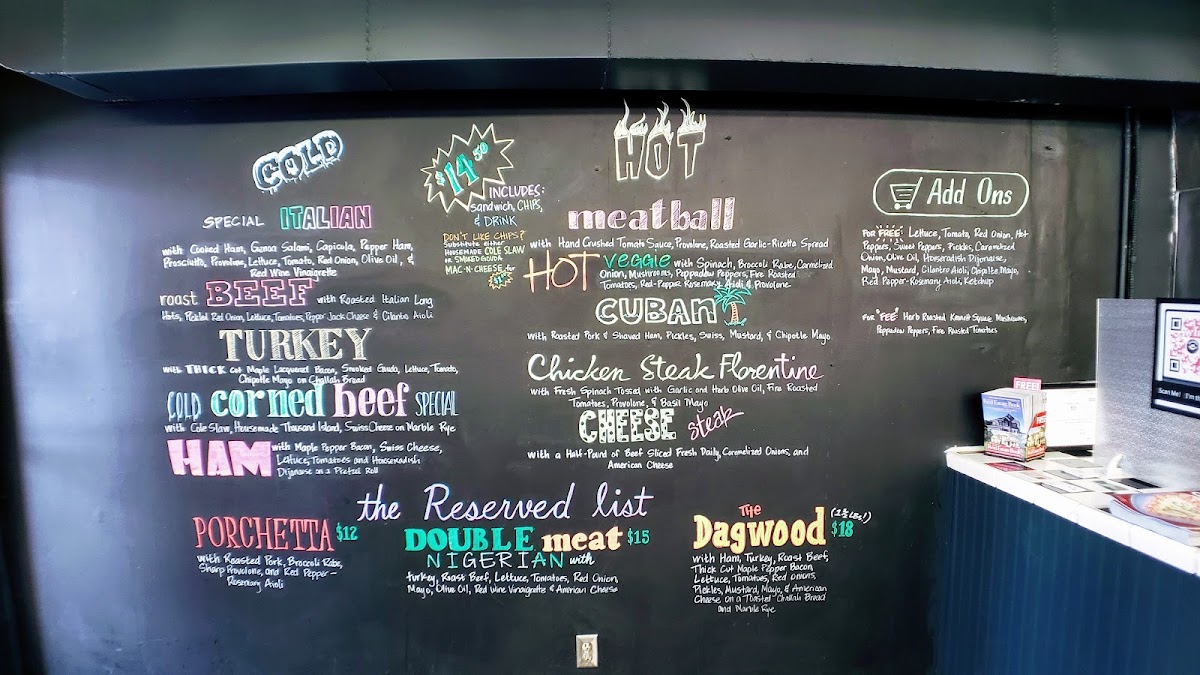 COLD
SPECIAL ITALIAN
with Cooked Ham, Genoa Salami, Capicola, Pepper Ham,
Prosciutto, Provolone, Lettuce, Tomato, Red Onion, Olive Oil, &
Red Wine Vinaigrette
roast BEEF with Roasted Italian Long
Hots, Pickled Red Onion, Lettuce, Tomatoes, Pepper Jack Cheese & Cilantro Aioli
TURKEY
with THICK Cut Maple Lacquered Bacon, Smoked Gouda, Lettuce, Tomato,
Chipotle Mayo on Challah Bread
COLD corned beef SPECIAL
with Cole Slaw, Housemade Thousand Island, Swiss Cheese on Marble Rye
HAM with Maple Pepper Bacon, Swiss Cheese,
Lettuce, Tomatoes and Horseradish
Dijonaise on a Pretzel Roll
$14.50
INCLUDES:
sandwich, CHIPS,
& DRINK
DON'T LIKE CHIPS?
Substitute either
HOUSEMADE COLE SLAW
or SMOKED GOUDA
MAC-N-CHEESE for
HOT
meatball
with Hand Crushed Tomato Sauce, Provolone, Roasted Garlic-Ricotta Spread
HOT veggie with Spinach, Broccoli Rabe, Carmelized
Onion, Mushrooms, Peppadew Peppers, Fire Roasted
Tomatoes, Red-Pepper Rosemary Aioli & Provolone
CUBAN
with Roasted Pork & Shaved Ham, Pickles, Swiss, Mustard, & Chipotle Mayo
Chicken Steak Florentine
with Fresh Spinach Tossed with Garlic and Herb Olive Oil, Fire Roasted
Tomatoes, Provolone, & Basil Mayo
CHEESE steak
with a Half-Pound of Beef Sliced Fresh Daily, Carmelized Onions, and
American Cheese
Add Ons
FOR FREE: Lettuce, Tomato, Red Onion, Hot
Peppers, Sweet Peppers, Pickles, Carmelized
Onion, Olive Oil, Horseradish Dijonaise,
Mayo, Mustard, Cilantro Aioli, Chipotle Mayo,
Red Pepper-Rosemary Aioli, Ketchup
FOR "FEE" Herb Roasted Kennett Square Mushrooms,
Peppadew Peppers, Fire Roasted Tomatoes
the Reserved list
PORCHETTA $12
with Roasted Pork, Broccoli Rabe,
Sharp Provolone, and Red Pepper-
Rosemary Aioli
DOUBLE meat $15
NIGERIAN with
turkey, Roast Beef, Lettuce, Tomatoes, Red Onion,
Mayo, Olive Oil, Red Wine Vinaigrette & American Cheese
The
Dagwood (1 1/2 LBS!) $18
with Ham, Turkey, Roast Beef,
Thick Cut Maple Pepper Bacon,
Lettuce, Tomatoes, Red onions,
Pickles, Mustard, Mayo, & American
Cheese on a Toasted Challah Bread
and Marble Rye
FREE
Real Estate Book
Scan Me! I'm th